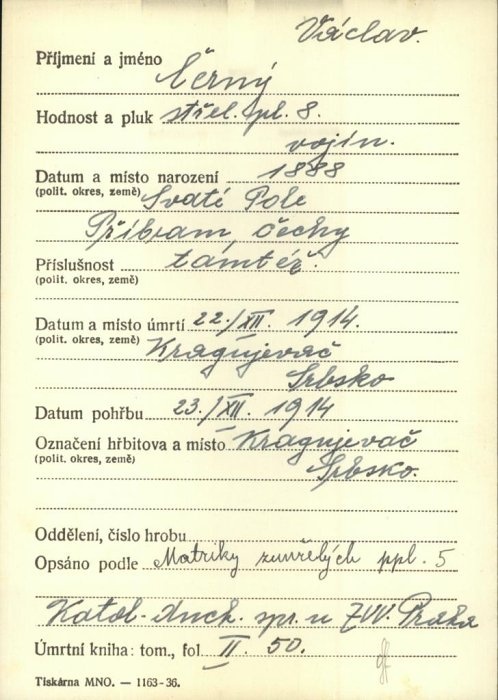 Václav.
Příjmení a jméno Černý
Hodnost a pluk střel. pl. 8.
vojín.
Datum a místo narození 1888
(polit. okres, země) Svaté Pole
Příbram Čechy
Příslušnost tamtéž.
(polit. okres, země)
Datum a místo úmrtí 22./XII. 1914.
(polit. okres, země) Kragujevač
Srbsko
Datum pohřbu 23./XII. 1914
Označení hřbitova a místo Kragujevač
(polit. okres, země) Srbsko.
Oddělení, číslo hrobu
Opsáno podle Matriky zemřelých ppl. 5
Katol. duch. spr. u ZVV. Praha
Úmrtní kniha: tom., fol. II. 50.
Tiskárna MNO. — 1163-36.